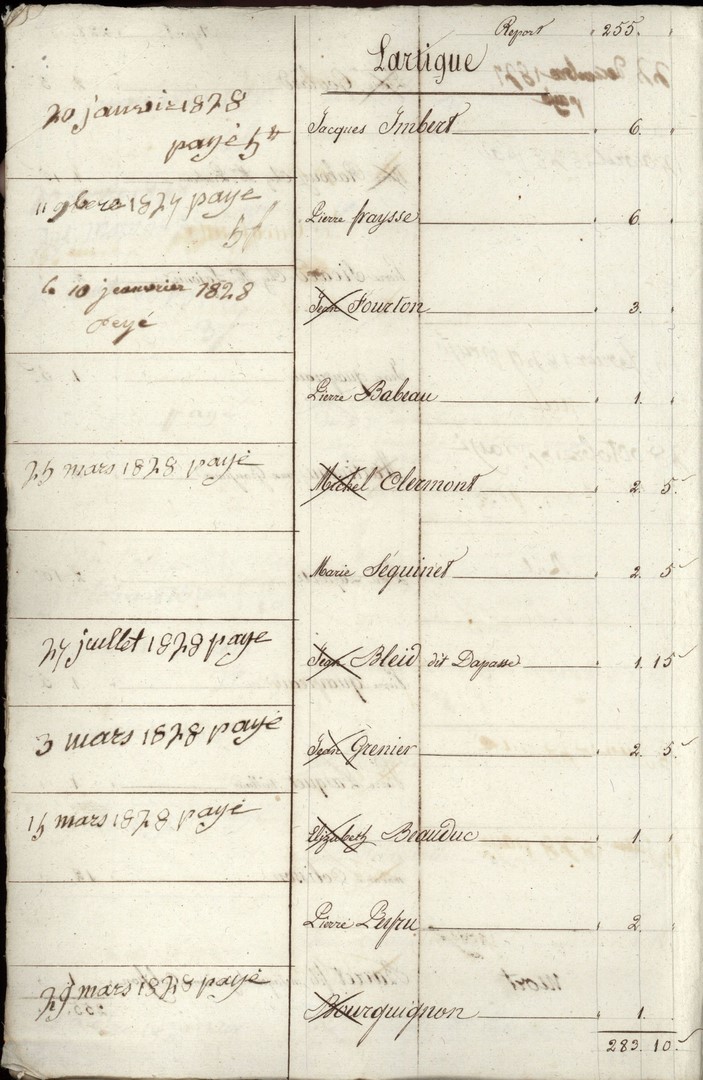 Report 255.
Lartigue
20 janvier 1828
payé 5#
Jacques Imbert 6.
11 9bere 1827 paye
Pierre fraysse 6.
le 10 jeanvrier 1828
peyé
Jean Fourton 3.
Pierre Babeau 1.
25 mars 1828 payé
Michel Clermont 2. 5
Marie Séguinet 2. 5
27 juillet 1828 paye
Jean Bleid dit Dapasse 1. 15
3 mars 1828 payé
Jean Grenier 2. 5
15 mars 1828 payé
Elizabeth Beauduc 1.
Pierre Peyru 2.
29 mars 1828 payé
Bourguignon 1.
283. 10